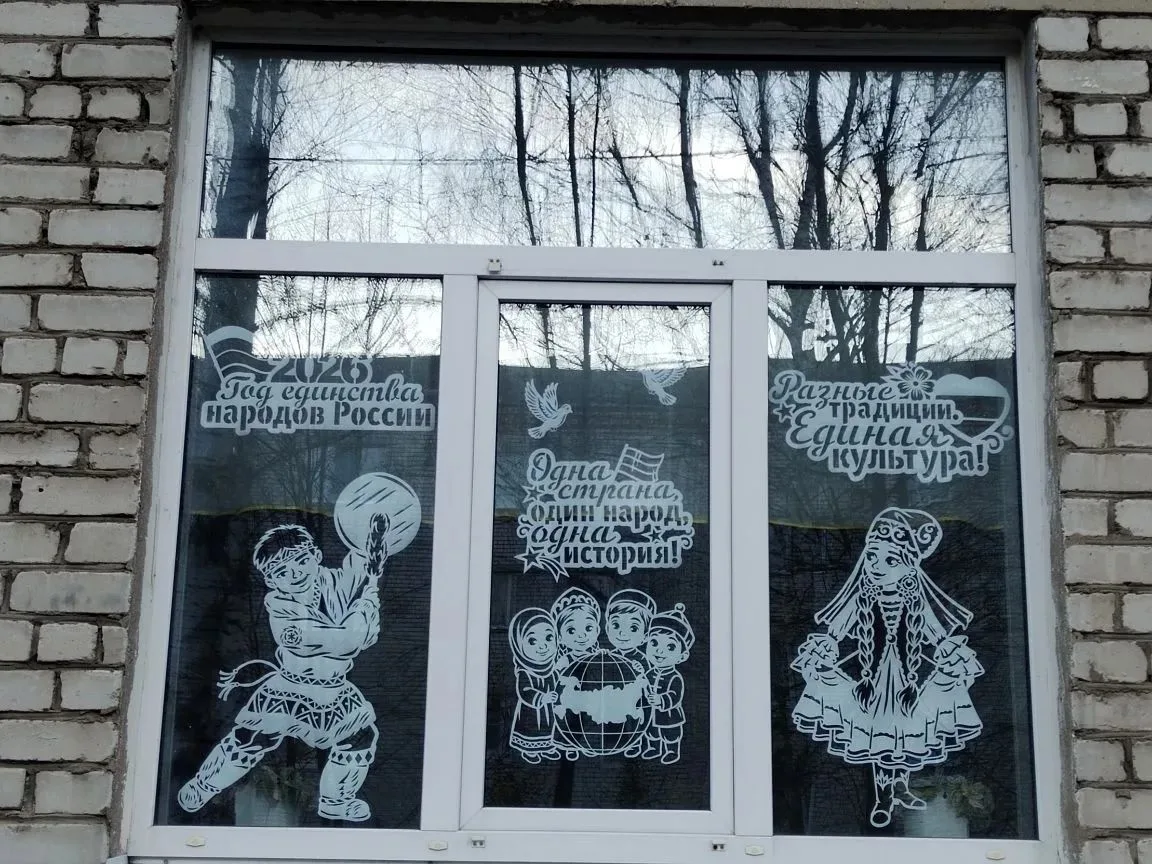 2026
Год единства
народов России
Одна
страна
один народ,
одна
история!
Разные
традиции.
Единая
культура!